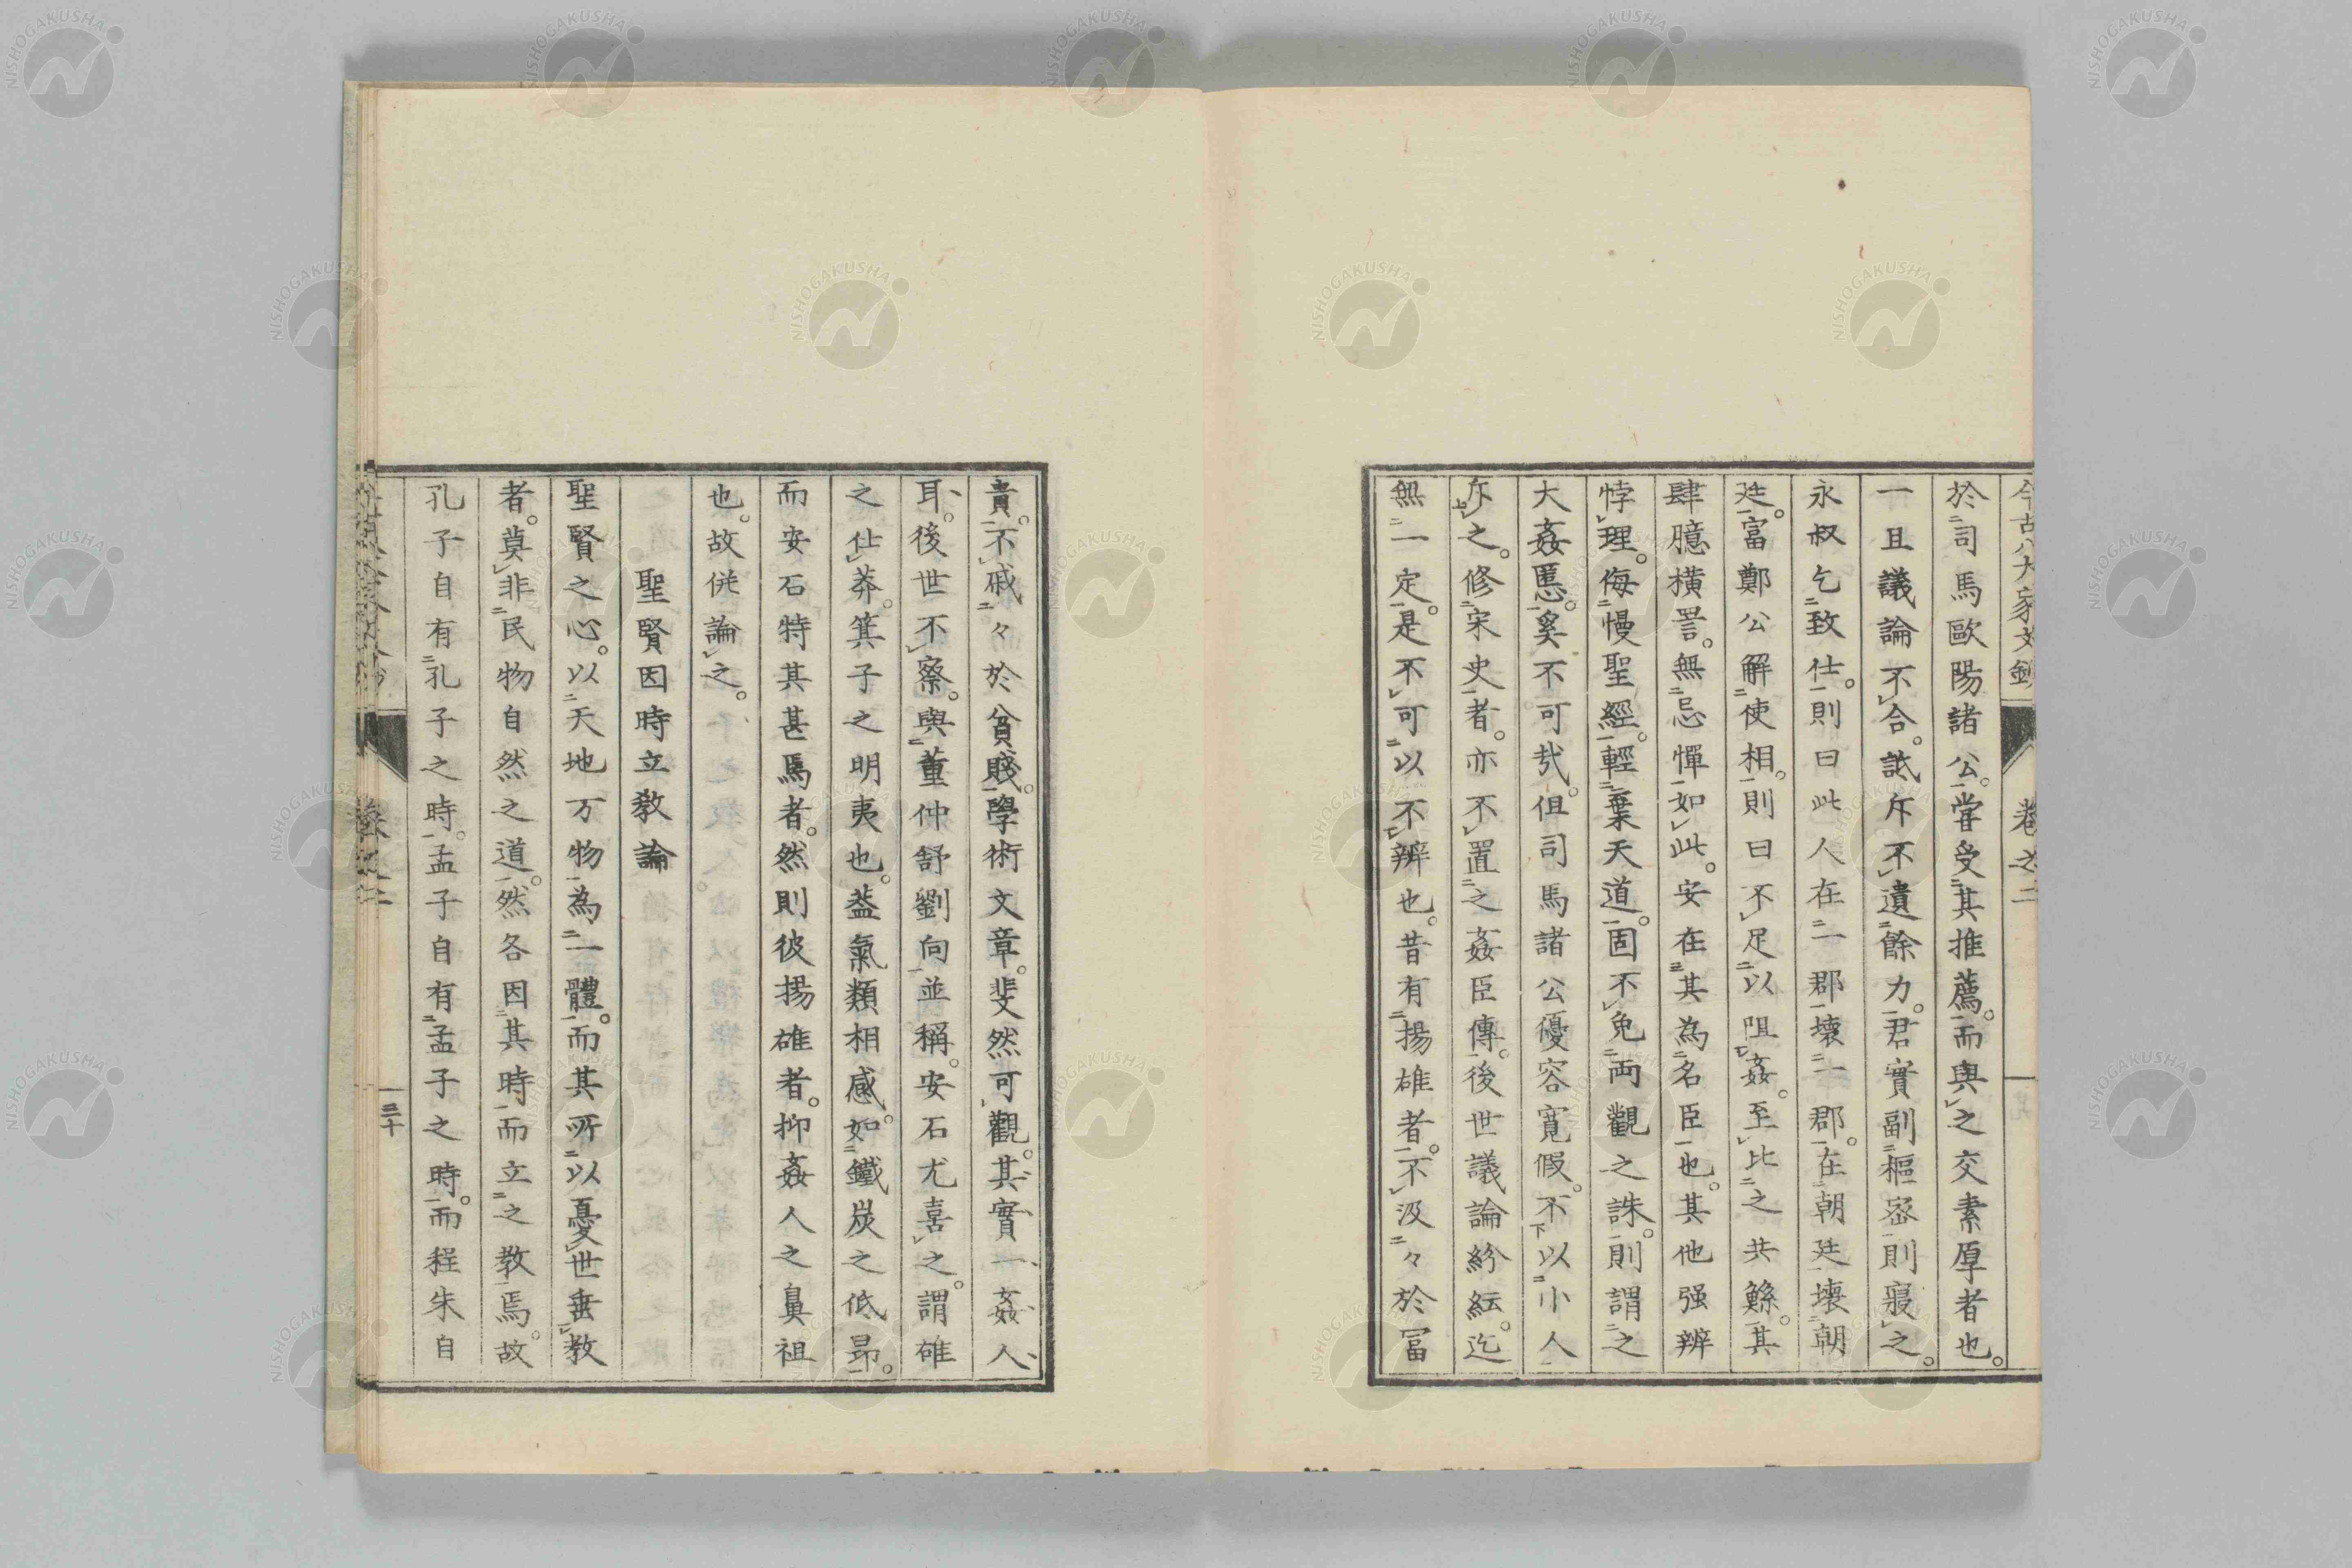 今古八大家文鈔 卷之二
於司馬歐陽諸公。嘗受其推薦。而與之交素厚者也。
一旦議論不合。詆斥不遺餘力。君實副樞密則寢之。
永叔乞致仕。則曰此人在一郡壞一郡。在朝廷壞朝
廷。富鄭公解使相。則曰不足以阻姦。至比之共鯀。其
肆臆橫詈。無忌憚如此。安在其為名臣也。其他强辨
悖理。侮慢聖經。輕棄天道。固不免両觀之誅。則謂之
大姦慝。奚不可㢤。但司馬諸公優容寬假。不以小人
斥之。修宋史者。亦不置之姦臣傳。後世議論紛紜。迄
無一定。是不可以不辨也。昔有揚雄者。不汲々於冨
貴。不戚々於貧賤。學術文章。斐然可觀。其實一姦人
耳。後世不察。與董仲舒劉向並稱。安石尤喜之。謂雄
之仕莽。箕子之明夷也。葢氣類相感。如鐵炭之低昻。
而安石特其甚焉者。然則彼揚雄者。抑姦人之鼻祖
也。故併論之。
聖賢因時立教論
聖賢之心。以天地万物為一體。而其所以憂世垂教
者。莫非民物自然之道。然各因其時而立之教焉。故
孔子自有孔子之時。孟子自有孟子之時。而程朱自
三十
NISHOGAKUSHA